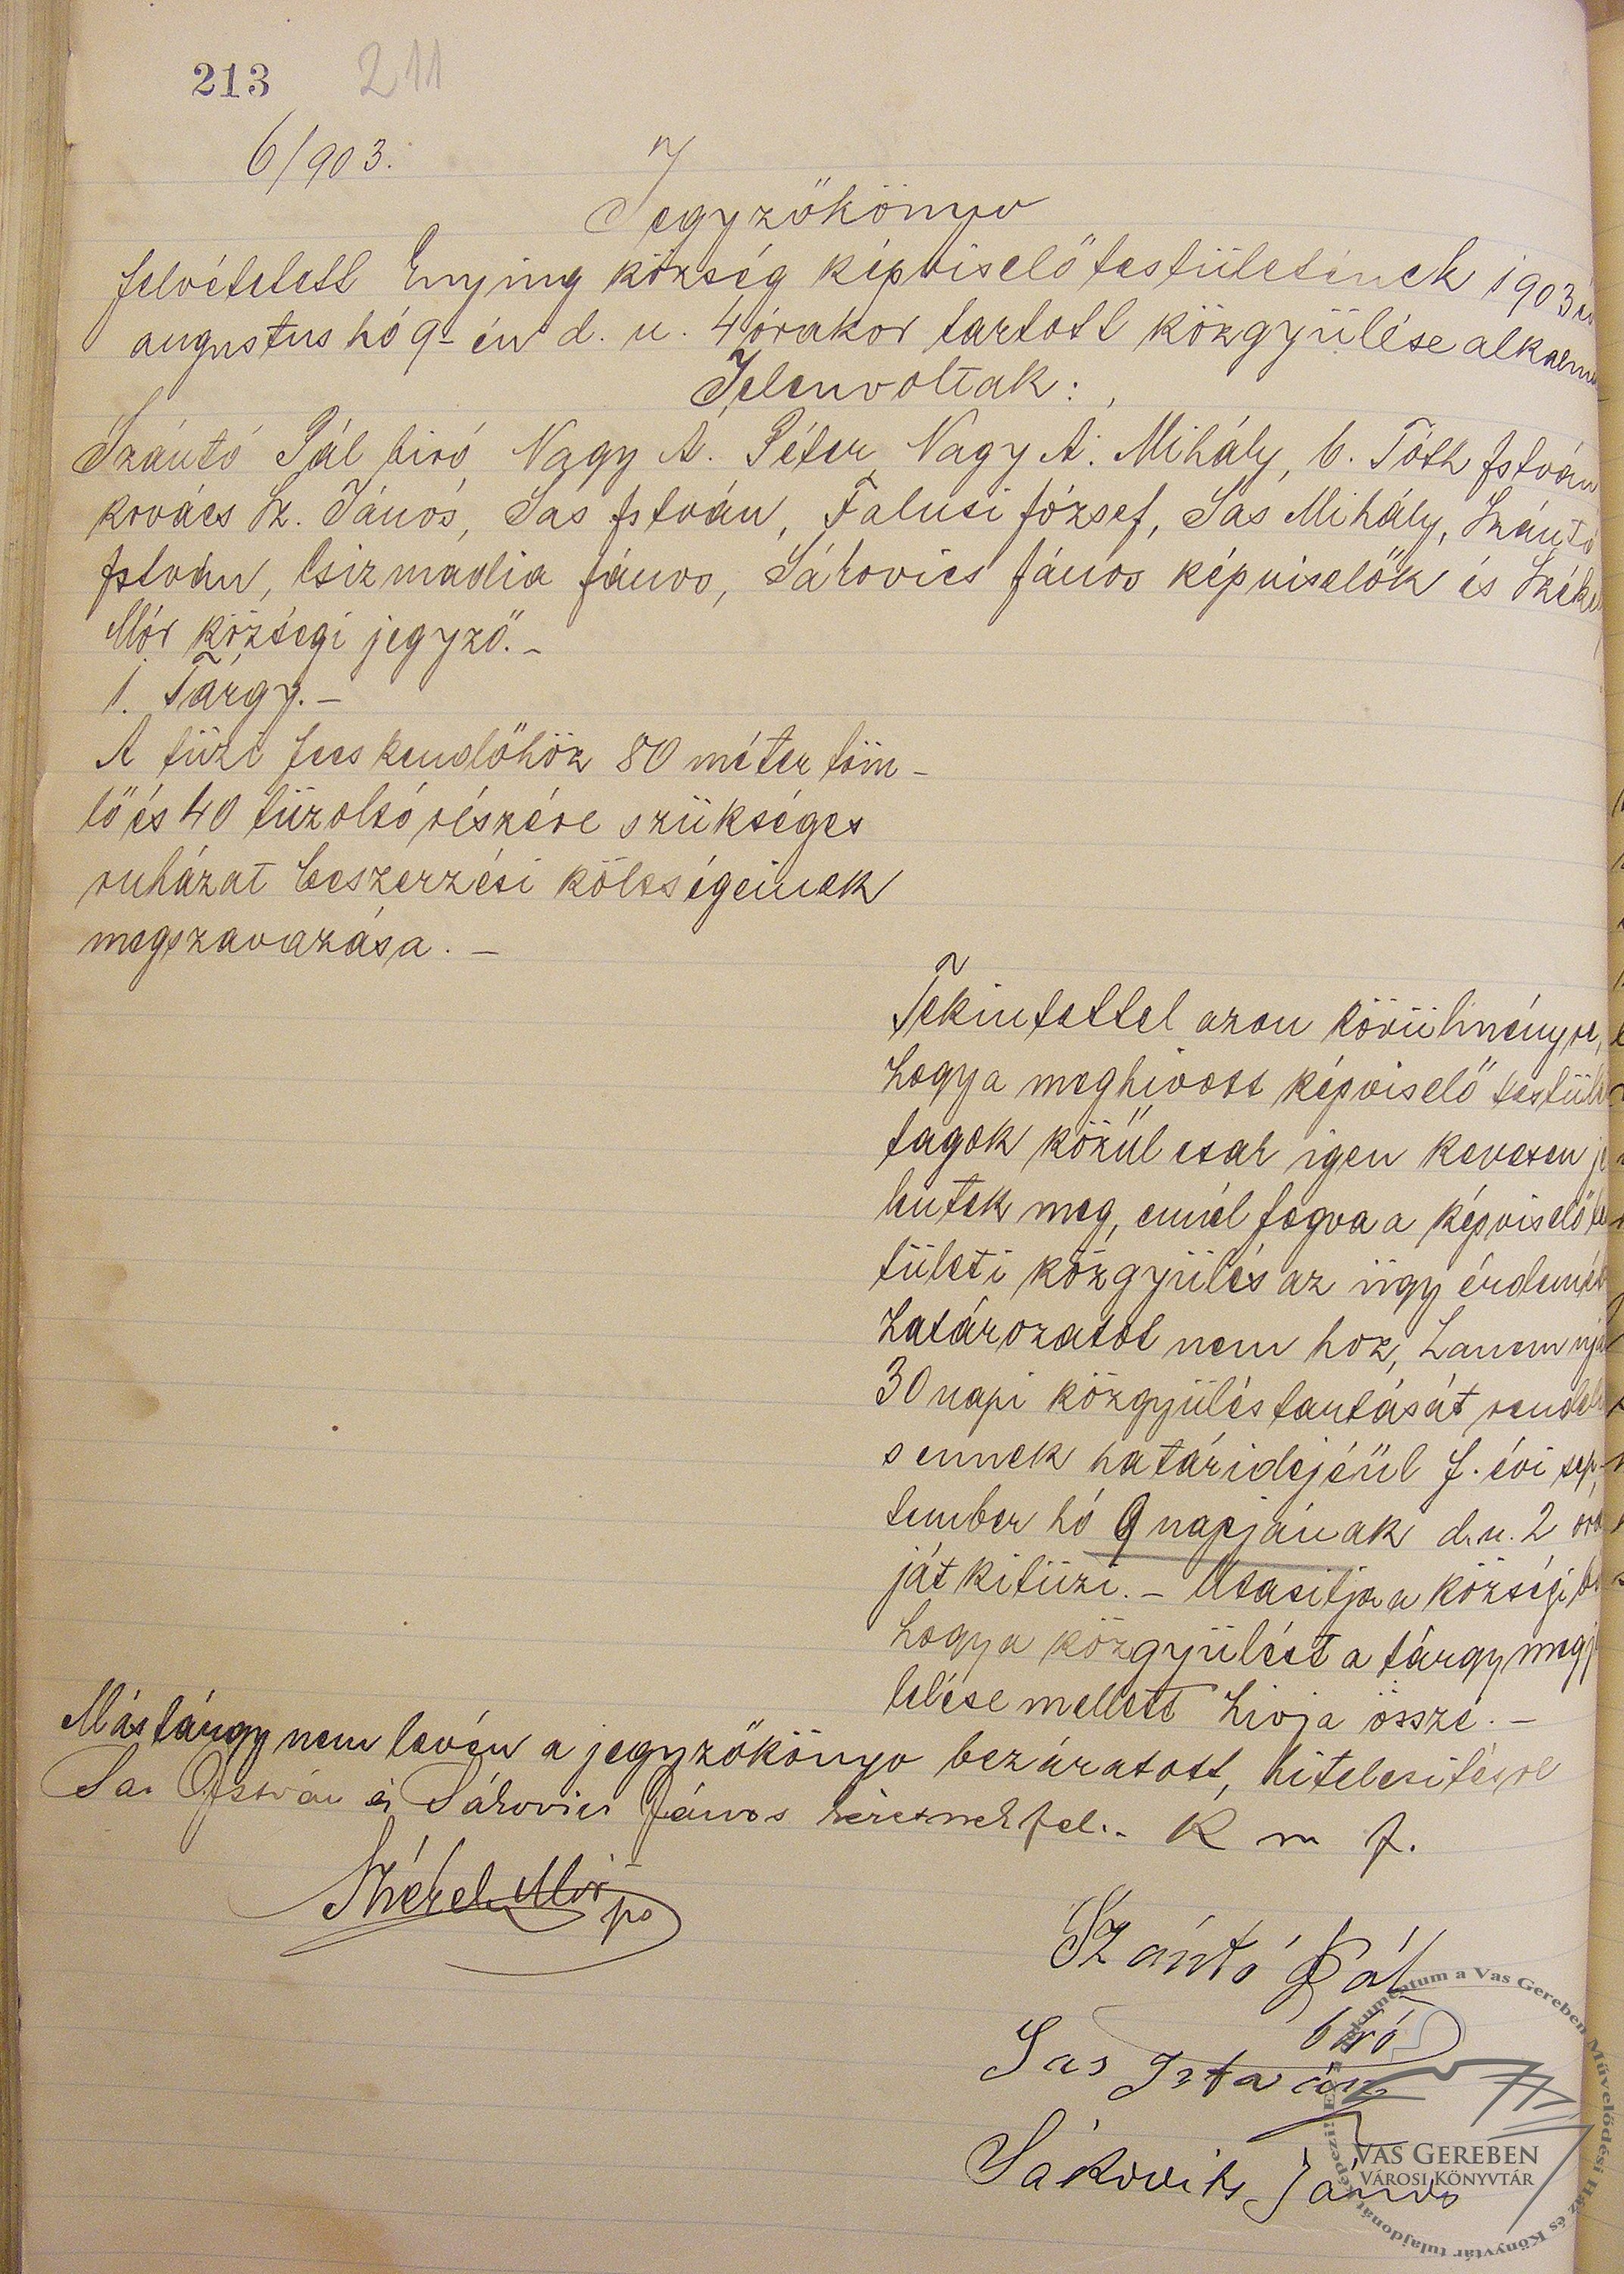 213 211
6/903.
Jegyzőkönyv
felvétetett Enying község képviselőtestületének 1903
augustus hó 9-én d. u. 4 órakor tartott közgyülése
Jelenvoltak:
Szántó Pál biró, Nagy A. Péter, Nagy A. Mihály, C. Tóth István
Kovács Sz. János, Sas István, Falusi József, Sas Mihály, Szántó
István, Csizmadia János, Sákovics János képviselők és
Mór községi jegyző. –
1. Tárgy. –
A tüzi fecskendőhöz 80 méter töm–
lő és 40 tüzoltó részére szükséges
ruházat beszerzési költségeinek
megszavazása. –
Tekintettel azon körülményre,
hogy a meghivott képviselő
tagok közül csak igen kevesen
lentek meg, ennél fogva a
tületi közgyülés az ügy
határozatot nem hoz, hanem
30 napi közgyülés tartását
s ennek határidejéül f. évi sep–
tember hó 9 napjának d. u. 2
ját kitüzi. – Utasitja a községi
hogy a közgyülést a tárgy
lelése mellett hivja össze. –
Más tárgy nem lévén a jegyzőkönyv bezáratott, hitelesitésre
Sas István és Sákovics János kéretnek fel. – K m f.
Székely Mór
Szántó Pál
biró
Sas István
Sákovits János
VAS GEREBEN
VÁROSI KÖNYVTÁR
dokumentum a Vas Gereben Művelődési Ház és Könyvtár tulajdonát képezi